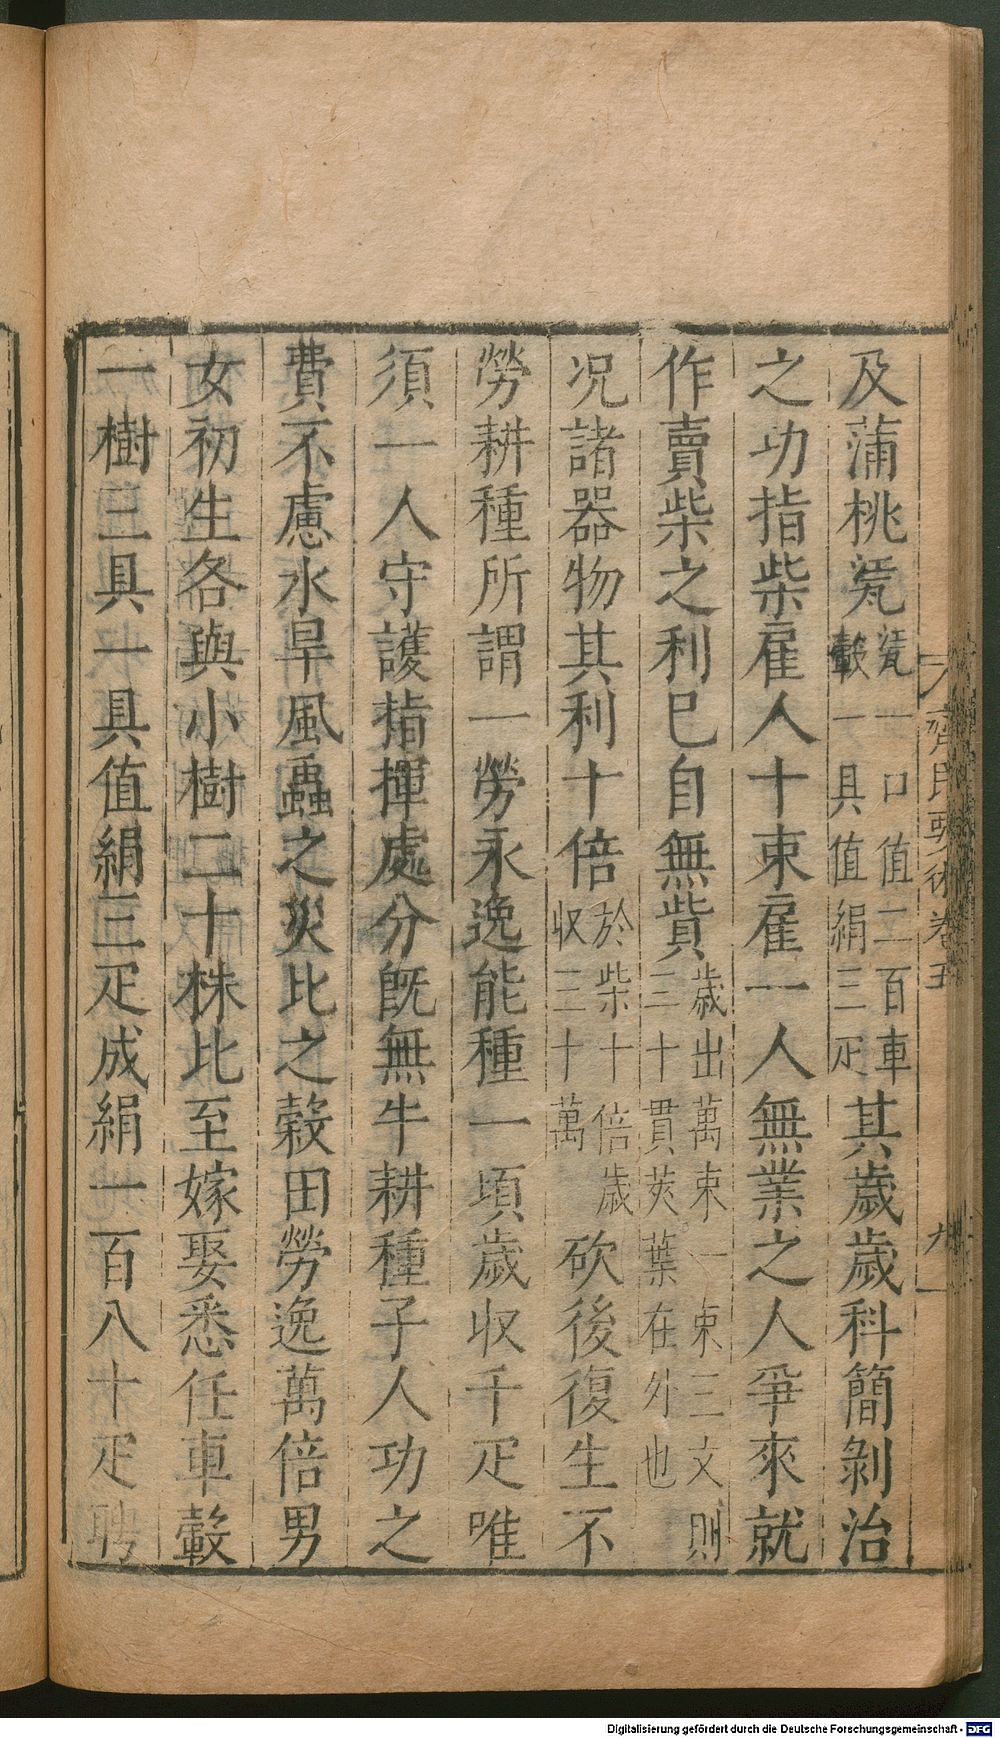 及蒲桃㼧㼧一口值二百車轂一具值絹三疋其歲歲科簡剝治
之功指柴雇人十束雇一人無業之人爭來就
作賣柴之利巳自無貲歲出萬束一束三文則三十貫莢葉在外也
况諸器物其利十倍於柴十倍歲收三十萬砍後復生不
勞耕種所謂一勞永逸能種一頃歲收千疋唯
須一人守護指揮處分旣無牛耕種子人功之
費不慮水旱風蟲之災比之穀田勞逸萬倍男
女初生各與小樹二十株比至嫁娶悉任車轂
一樹三具一具值絹三疋成絹一百八十疋聘
齊民要術卷五
九
Digitalisierung gefördert durch die Deutsche Forschungsgemeinschaft - DFG